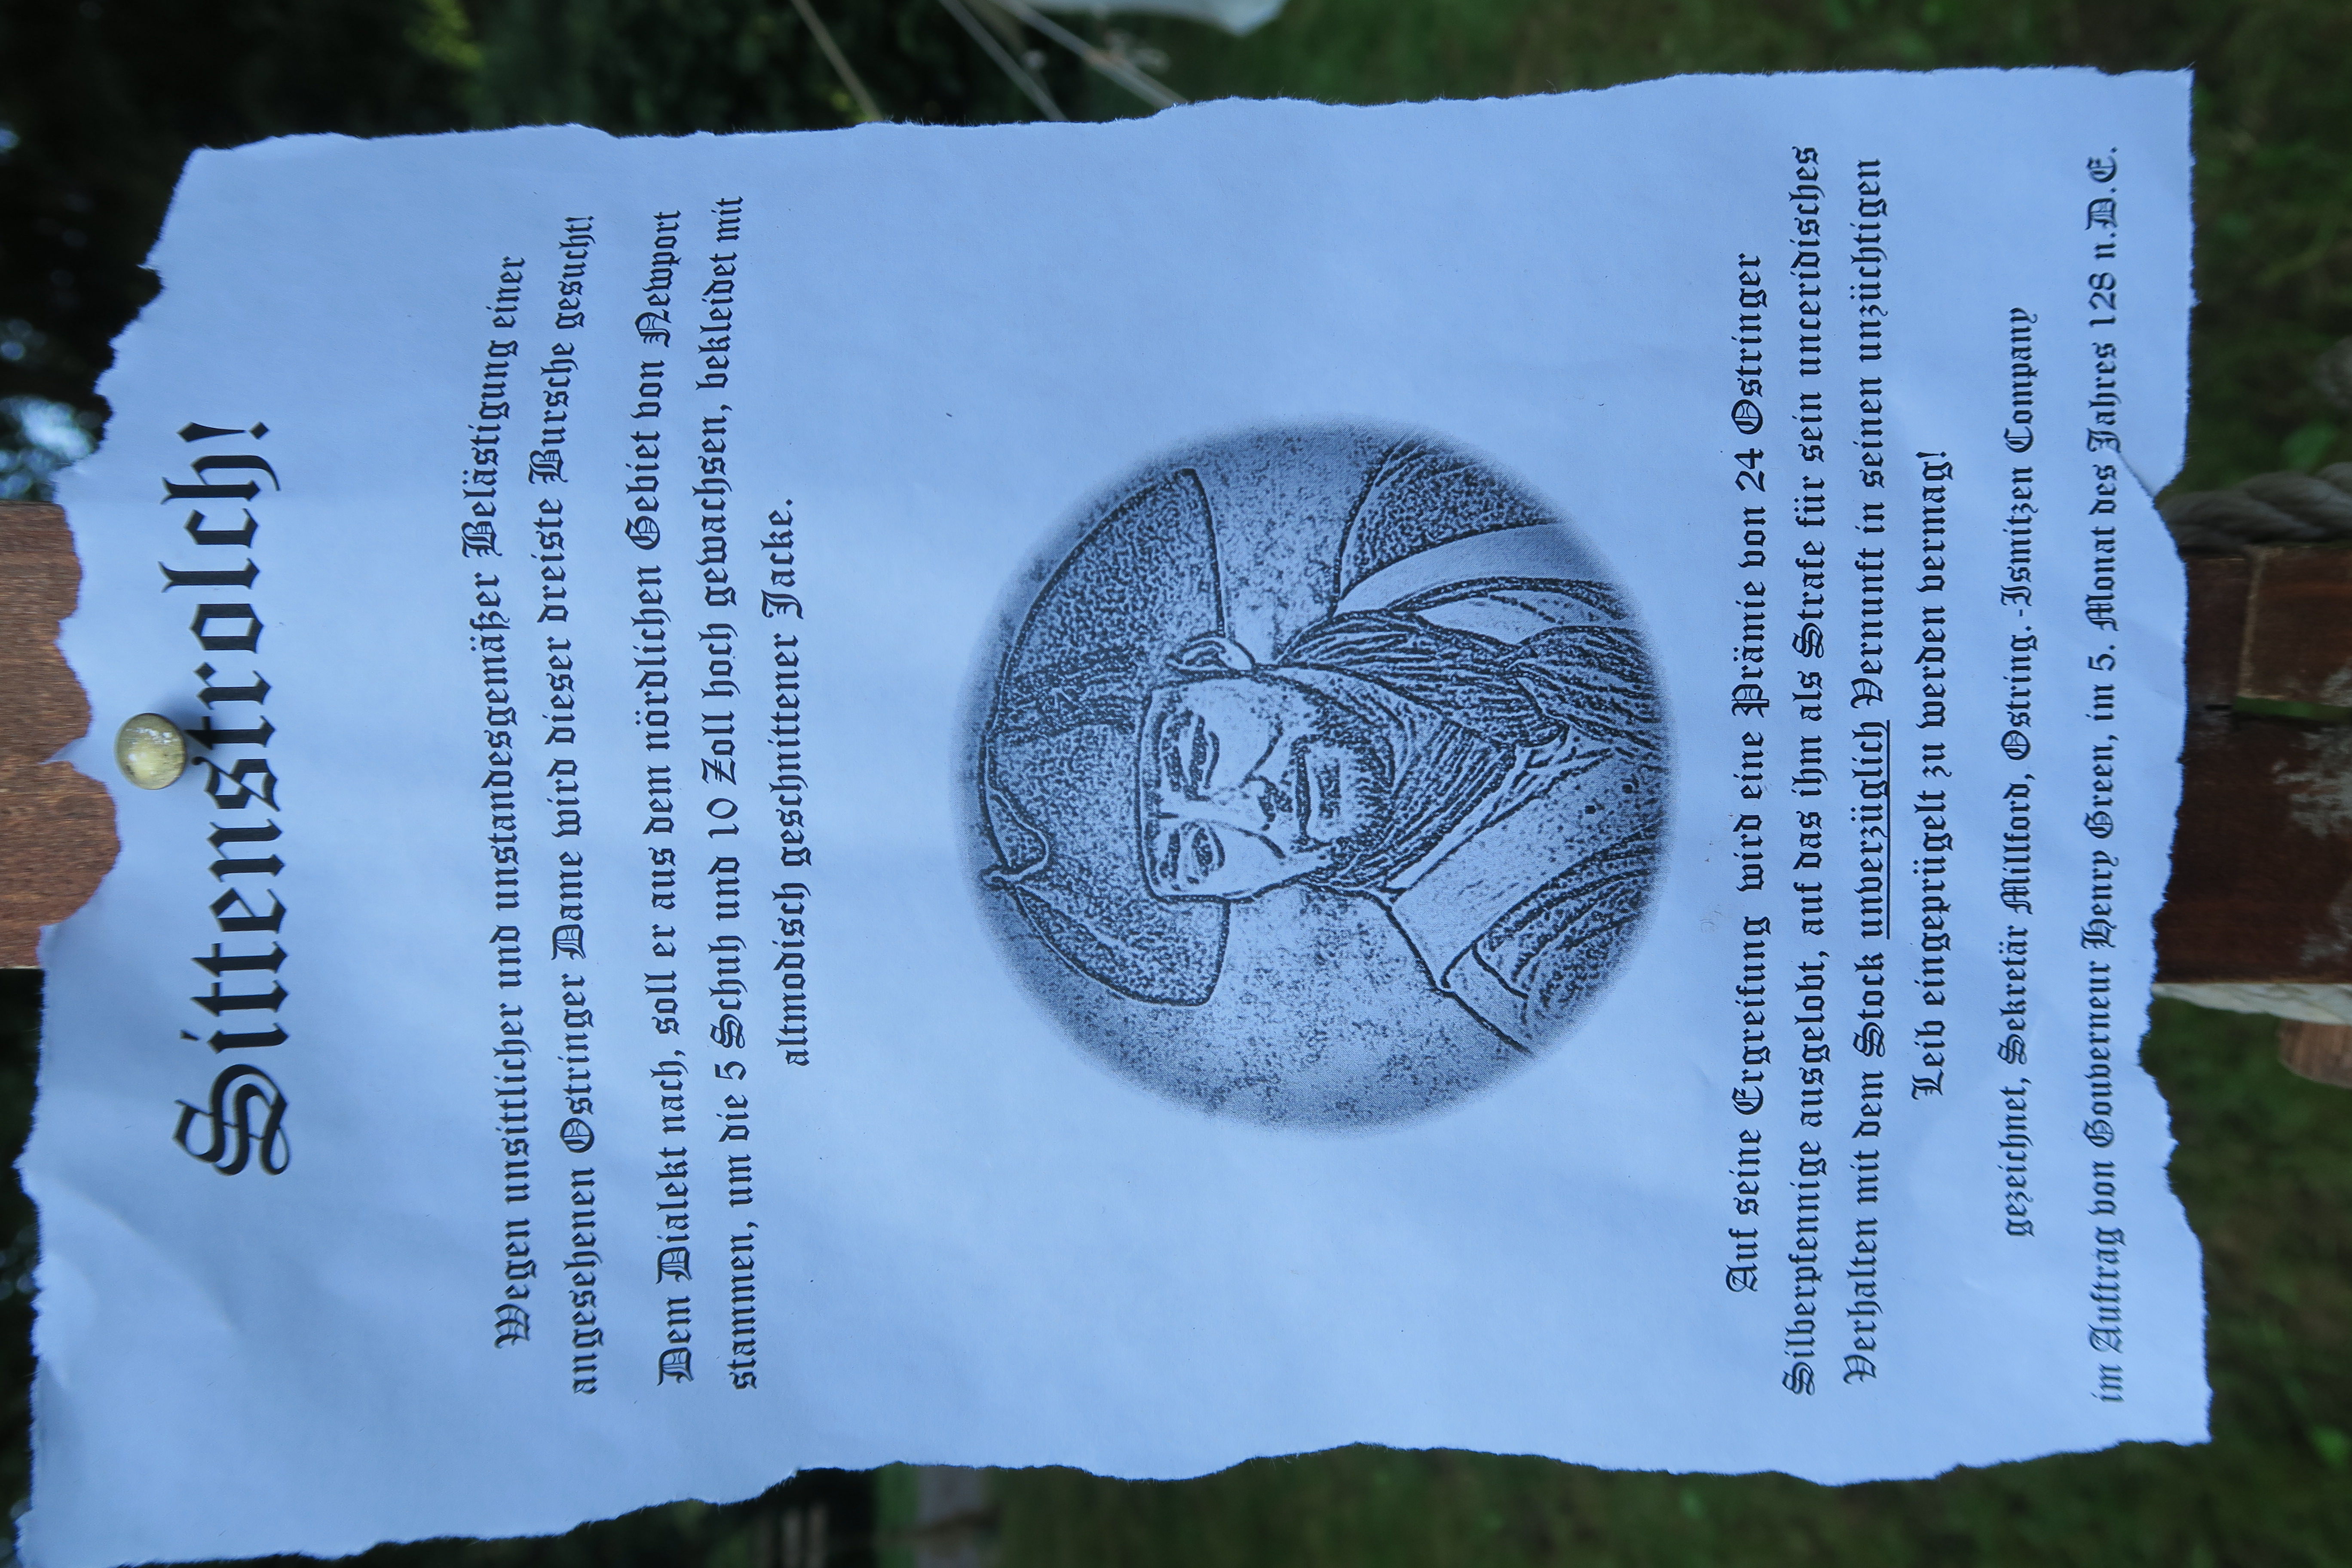 Sittenstrolch!
Wegen unsittlicher und unstandesgemäßer Belästigung einer
angesehenen Ostringer Dame wird dieser dreiste Bursche gesucht!
Dem Dialekt nach, soll er aus dem nördlichen Gebiet von Newport
stammen, um die 5 Schuh und 10 Zoll hoch gewachsen, bekleidet mit
altmodisch geschnittener Jacke.
Auf seine Ergreifung wird eine Prämie von 24 Ostringer
Silberpfennige ausgelobt, auf das ihm als Strafe für sein unceridisches
Verhalten mit dem Stock unverzüglich Vernunft in seinen unzüchtigen
Leib eingeprügelt zu werden vermag!
gezeichnet, Sekretär Millford, Ostring.-Ismitzen Company
im Auftrag von Gouverneur Henry Green, im 5. Monat des Jahres 128 n.D.E.